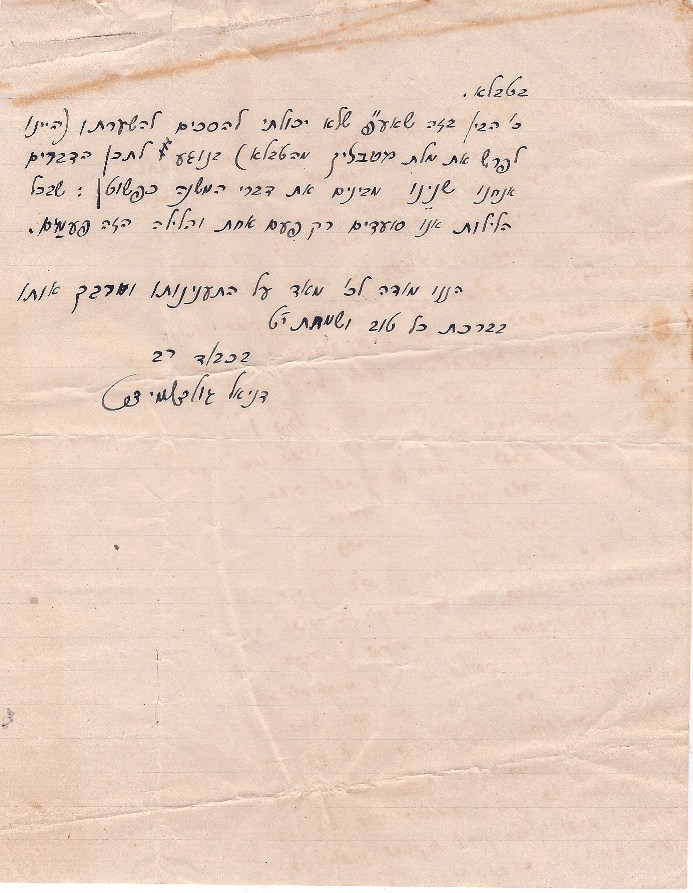 בטבלא.
כ' הבין בזה שאעפ"י שלא יכולתי להסכים להשערתו (היינו
לפרש את מלת מטבילין מהטבלא) בנוגע לתכן הדברים
אנחנו שנינו מבינים את דברי המשנה כפשוטן : שבכל
הלילות אנו סועדים רק פעם אחת והלילה הזה פעמים.
הנני מודה לכ' מאד על התענינותו ומברך אותו
בברכת כל טוב ושמחת י"ט
בכבוד רב
דניאל גולדשמידט